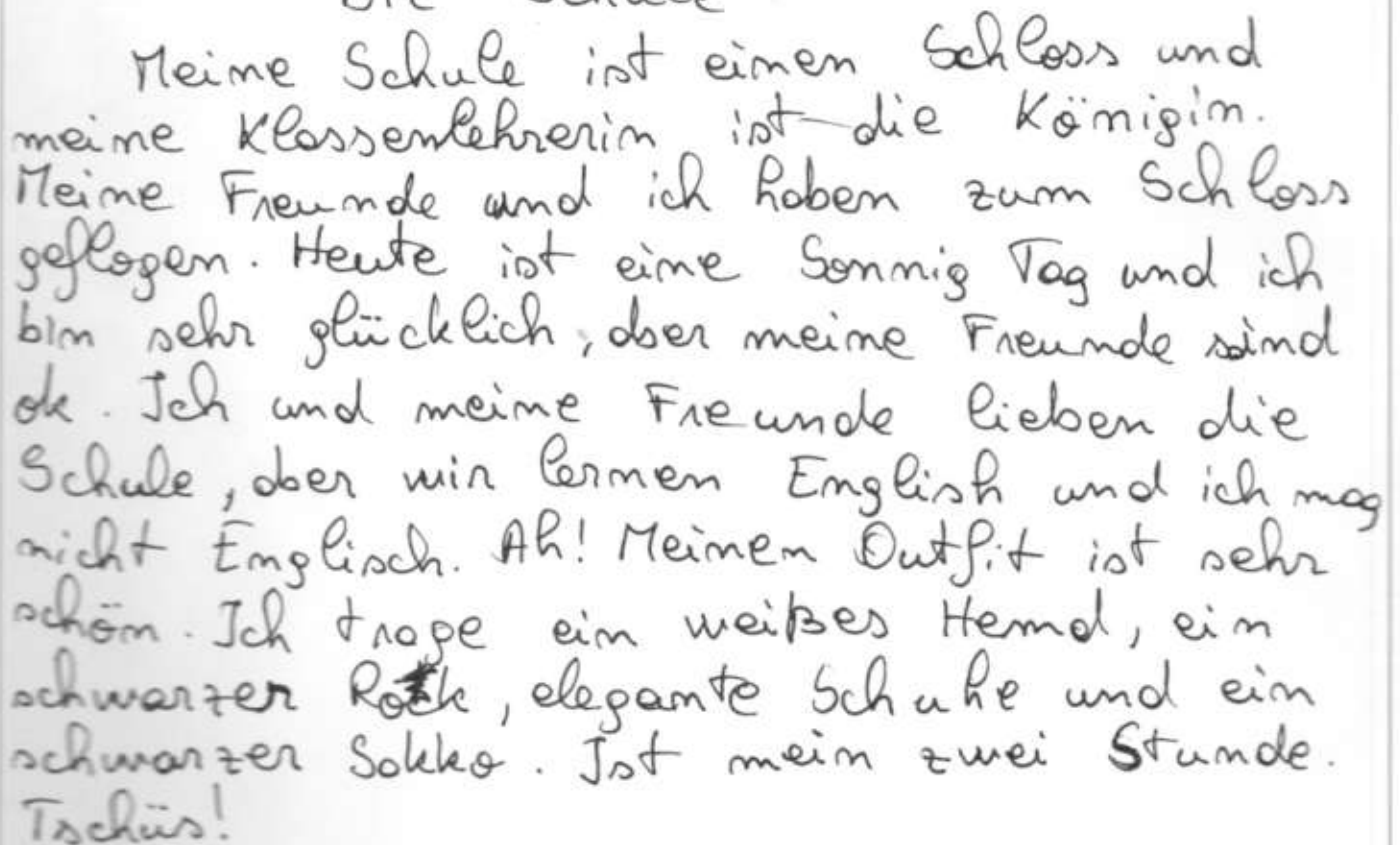 Die Schule
Meine Schule ist einen Schloss und
meine Klassenlehrerin ist die Königin.
Meine Freunde und ich haben zum Schloss
geflogen. Heute ist eine Sonnig Tag und ich
bin sehr glücklich, aber meine Freunde sind
ok. Ich und meine Freunde lieben die
Schule, aber wir lernen English und ich mag
nicht Englisch. Ah! Meinen Outfit ist sehr
schön. Ich trage ein weißes Hemd, ein
schwarzer Rock, elegante Schuhe und ein
schwarzer Sakko. Ist mein zwei Stunde.
Tschüs!